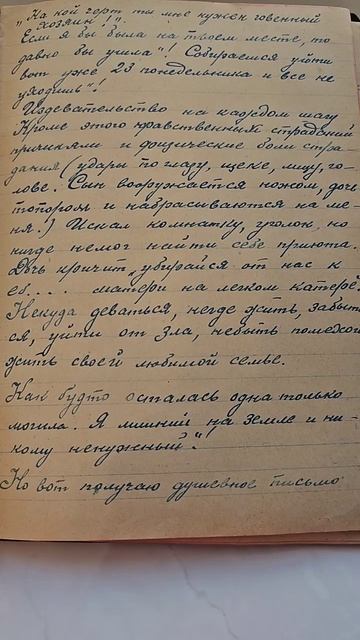 „На кой черт ты мне нужен говенный
Хозяин!".
Если я бы была на твоем месте, то
давно бы ушла"! Собираешся уйти
вот уже 23 понедельника и все не
уходишь"!
Издевательство на каждом шагу
Кроме этого нравственных страданий
приняли и физические боли стра-
дания (удары по глазу, щеке, лицу, го-
лове. Сын вооружается ножом, дочь
топором и набрасываются на ме-
ня.) Искал комнатку, уголок, но
нигде немог найти себе приюта.
Дочь кричит „убирайся от нас к
еб... матери на легком катере.
Некуда деваться, негде жить, забыть
ся, уйти от зла, небыть помехой
жить своей любимой семье.
Как будто осталась одна только
могила. Я лишний на земле и ни-
кому ненужный"!
Но вот получаю душевное письмо